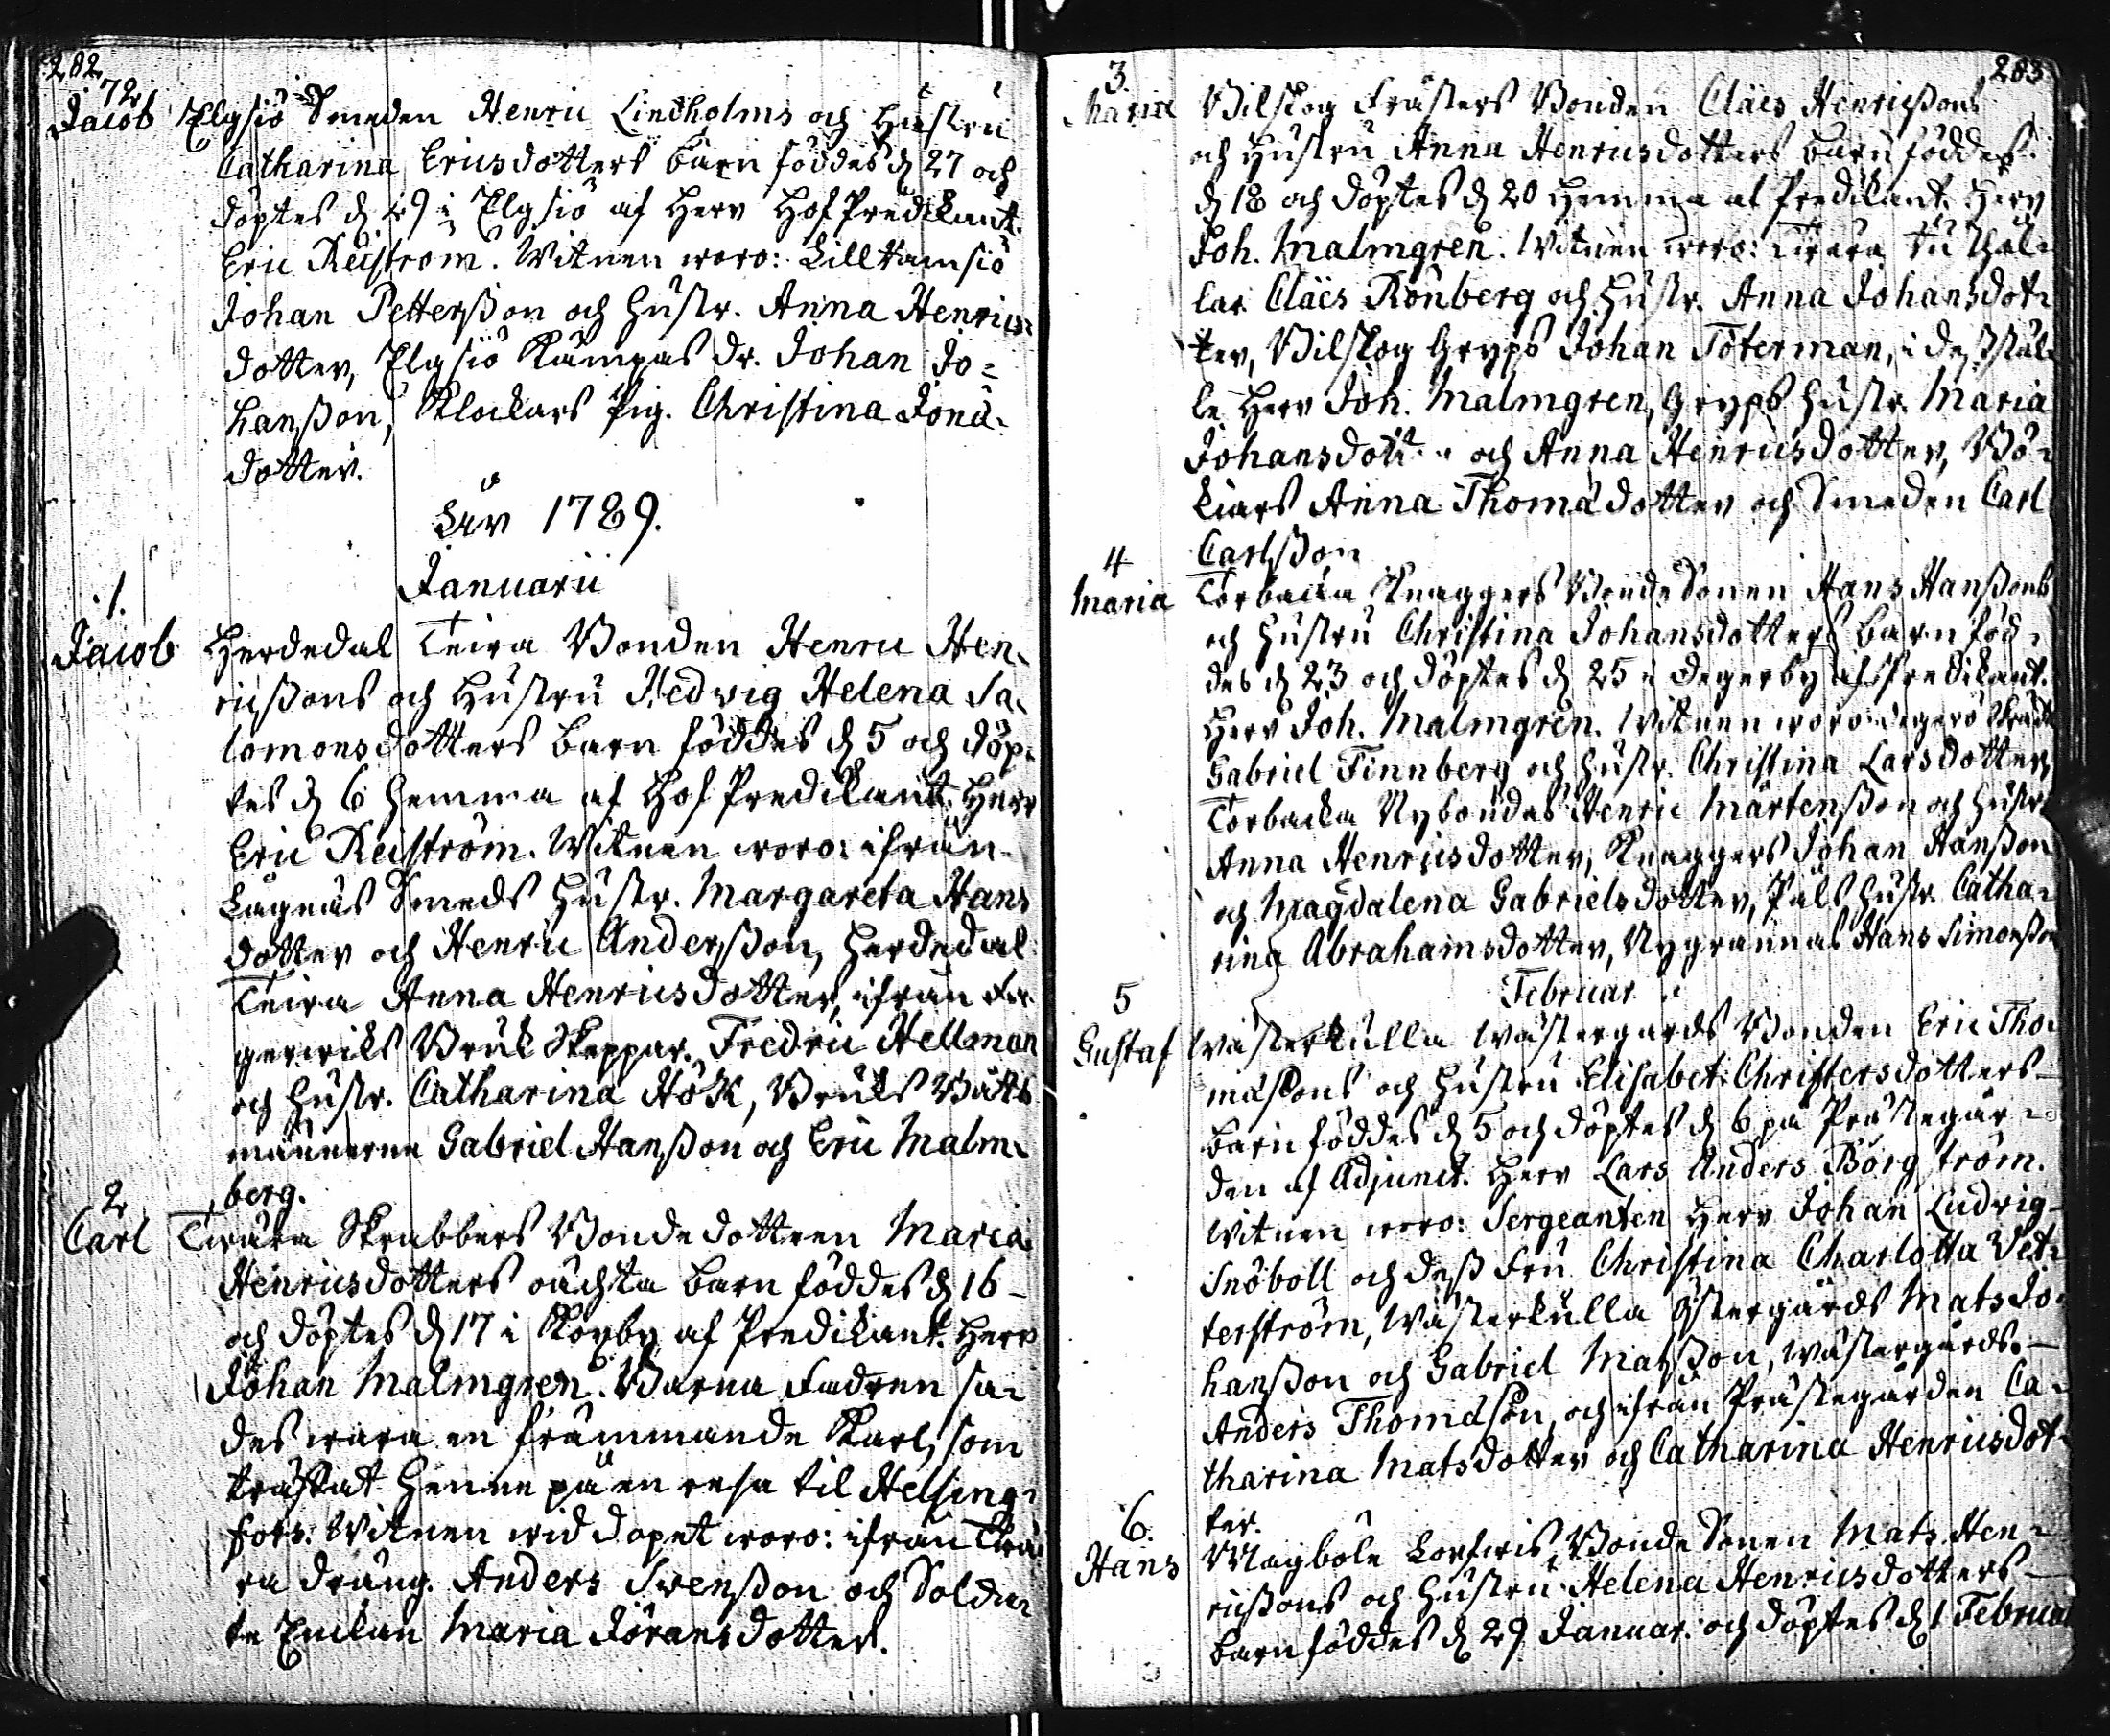 282
72
Jacob Elgsiö Smeden Henric Lindholms och Hustru
Catharina Ericsdotters barn föddes d 27 och
döptes d 29 i Elgsiö af Herr Hof Predikant.
Eric Reiström. Witnen woro: Lill
Johan Petterßon och Hustr. Anna Henrics-
dotter, Elgsiö Kämpas Dr. Johan Jo=
hanßon, Klockars Pig. Christina Jona-
dotter.
År 1789.
Januarii
1.
Jacob Herdedal Teira Bonden Henric Hen-
ricßons och Hustru Hedvig Helena Sa-
lomonsdotters barn föddes d 5 och döp-
tes d 6 hemma af Hof Predikant. Herr
Eric Reiström. Witnen woro: ifrån
Lagnäs Smeds Hustr. Margareta Hans
dotter och Henric Anderßon, Herdedal
Teira Anna Henricsdotter, ifrån Fa-
gerwiks Bruk Skeppar. Fredric Hellman
och Hustr. Catharina Hök, Bruks Båts
männerne Gabriel Hanßon och Eric Malm-
berg.
2
Carl Twära Skrabbers Bondedottren Maria
Henricsdotters oächta barn föddes d 16
och döptes d 17 i Köpby af Predikant. Herr
Johan Malmgren. Barna Fadren sa-
des wara en främmande Karl, som
träffat henne på en resa til Helsing-
fors. Witnen wid dopet woro: ifrån Twä-
ra dräng. Anders Swenßon och Solda-
te Enkan Maria Jöransdotter.
283
3.
Maria Bilskog Frästers Bonden Claës Henricßons
och Hustru Anna Henricsdotters barn föddes
d 18 och döptes d 20 hemma af Predikant. Herr
Joh. Malmgren. Witnen woro: Twära
lar Claës Rönberg och Hustr. Anna Johansdot-
ter, Bilskog Gryps Johan Töterman, i deß stäl-
le Herr Joh. Malmgren, Gryps Hustr. Maria
Johansdott. och Anna Henricsdotter, Bö-
kars Anna Thomædotter och Smeden Carl
Carlßon
4
Maria Torbacka Knaggers BondeSonen Hans Hanßons
och Hustru Christina Johansdotters barn föd-
des d 23 och döptes d 25 i Degerby af Predikant.
Herr Joh. Malmgren. Witnen woro: Degerö
Gabriel Finnberg och Hustr. Christina Larsdotter,
Torbacka Nybondas Henric Mårtenßon och Hustr.
Anna Henricsdotter, Knaggers Johan Hanßon
och Magdalena Gabrielsdotter, Påls Hustr. Catha-
rina Abrahamsdotter, Nygrannas Hans Simonßon
Februar.
5
Gustaf Wästerkulla Wästergårds Bonden Eric Tho-
mæsons och Hustru Elisabet Christersdotters
barn föddes d 5 och döptes d 6 på Prästegår-
den af Adjunct. Herr Lars Anders Borgström.
Witnen woro: Sergeanten Herr Johan Ludvig
Snöboll och deß Fru Christina Charlotta Vet-
terström, Wästerkulla Östergårds Mats Jo-
hanßon och Gabriel Matsßon, Wästergårds
Anders Thomæson, och ifrån Prästegården Ca-
tharina Matsdotter och Catharina Henricsdot-
ter.
6.
Hans Magböle Lorfwis BondeSonen Mats Hen-
ricßons och Hustru Helena Henricsdotters
barn föddes d 29 Januar. och döptes d 1 Februar